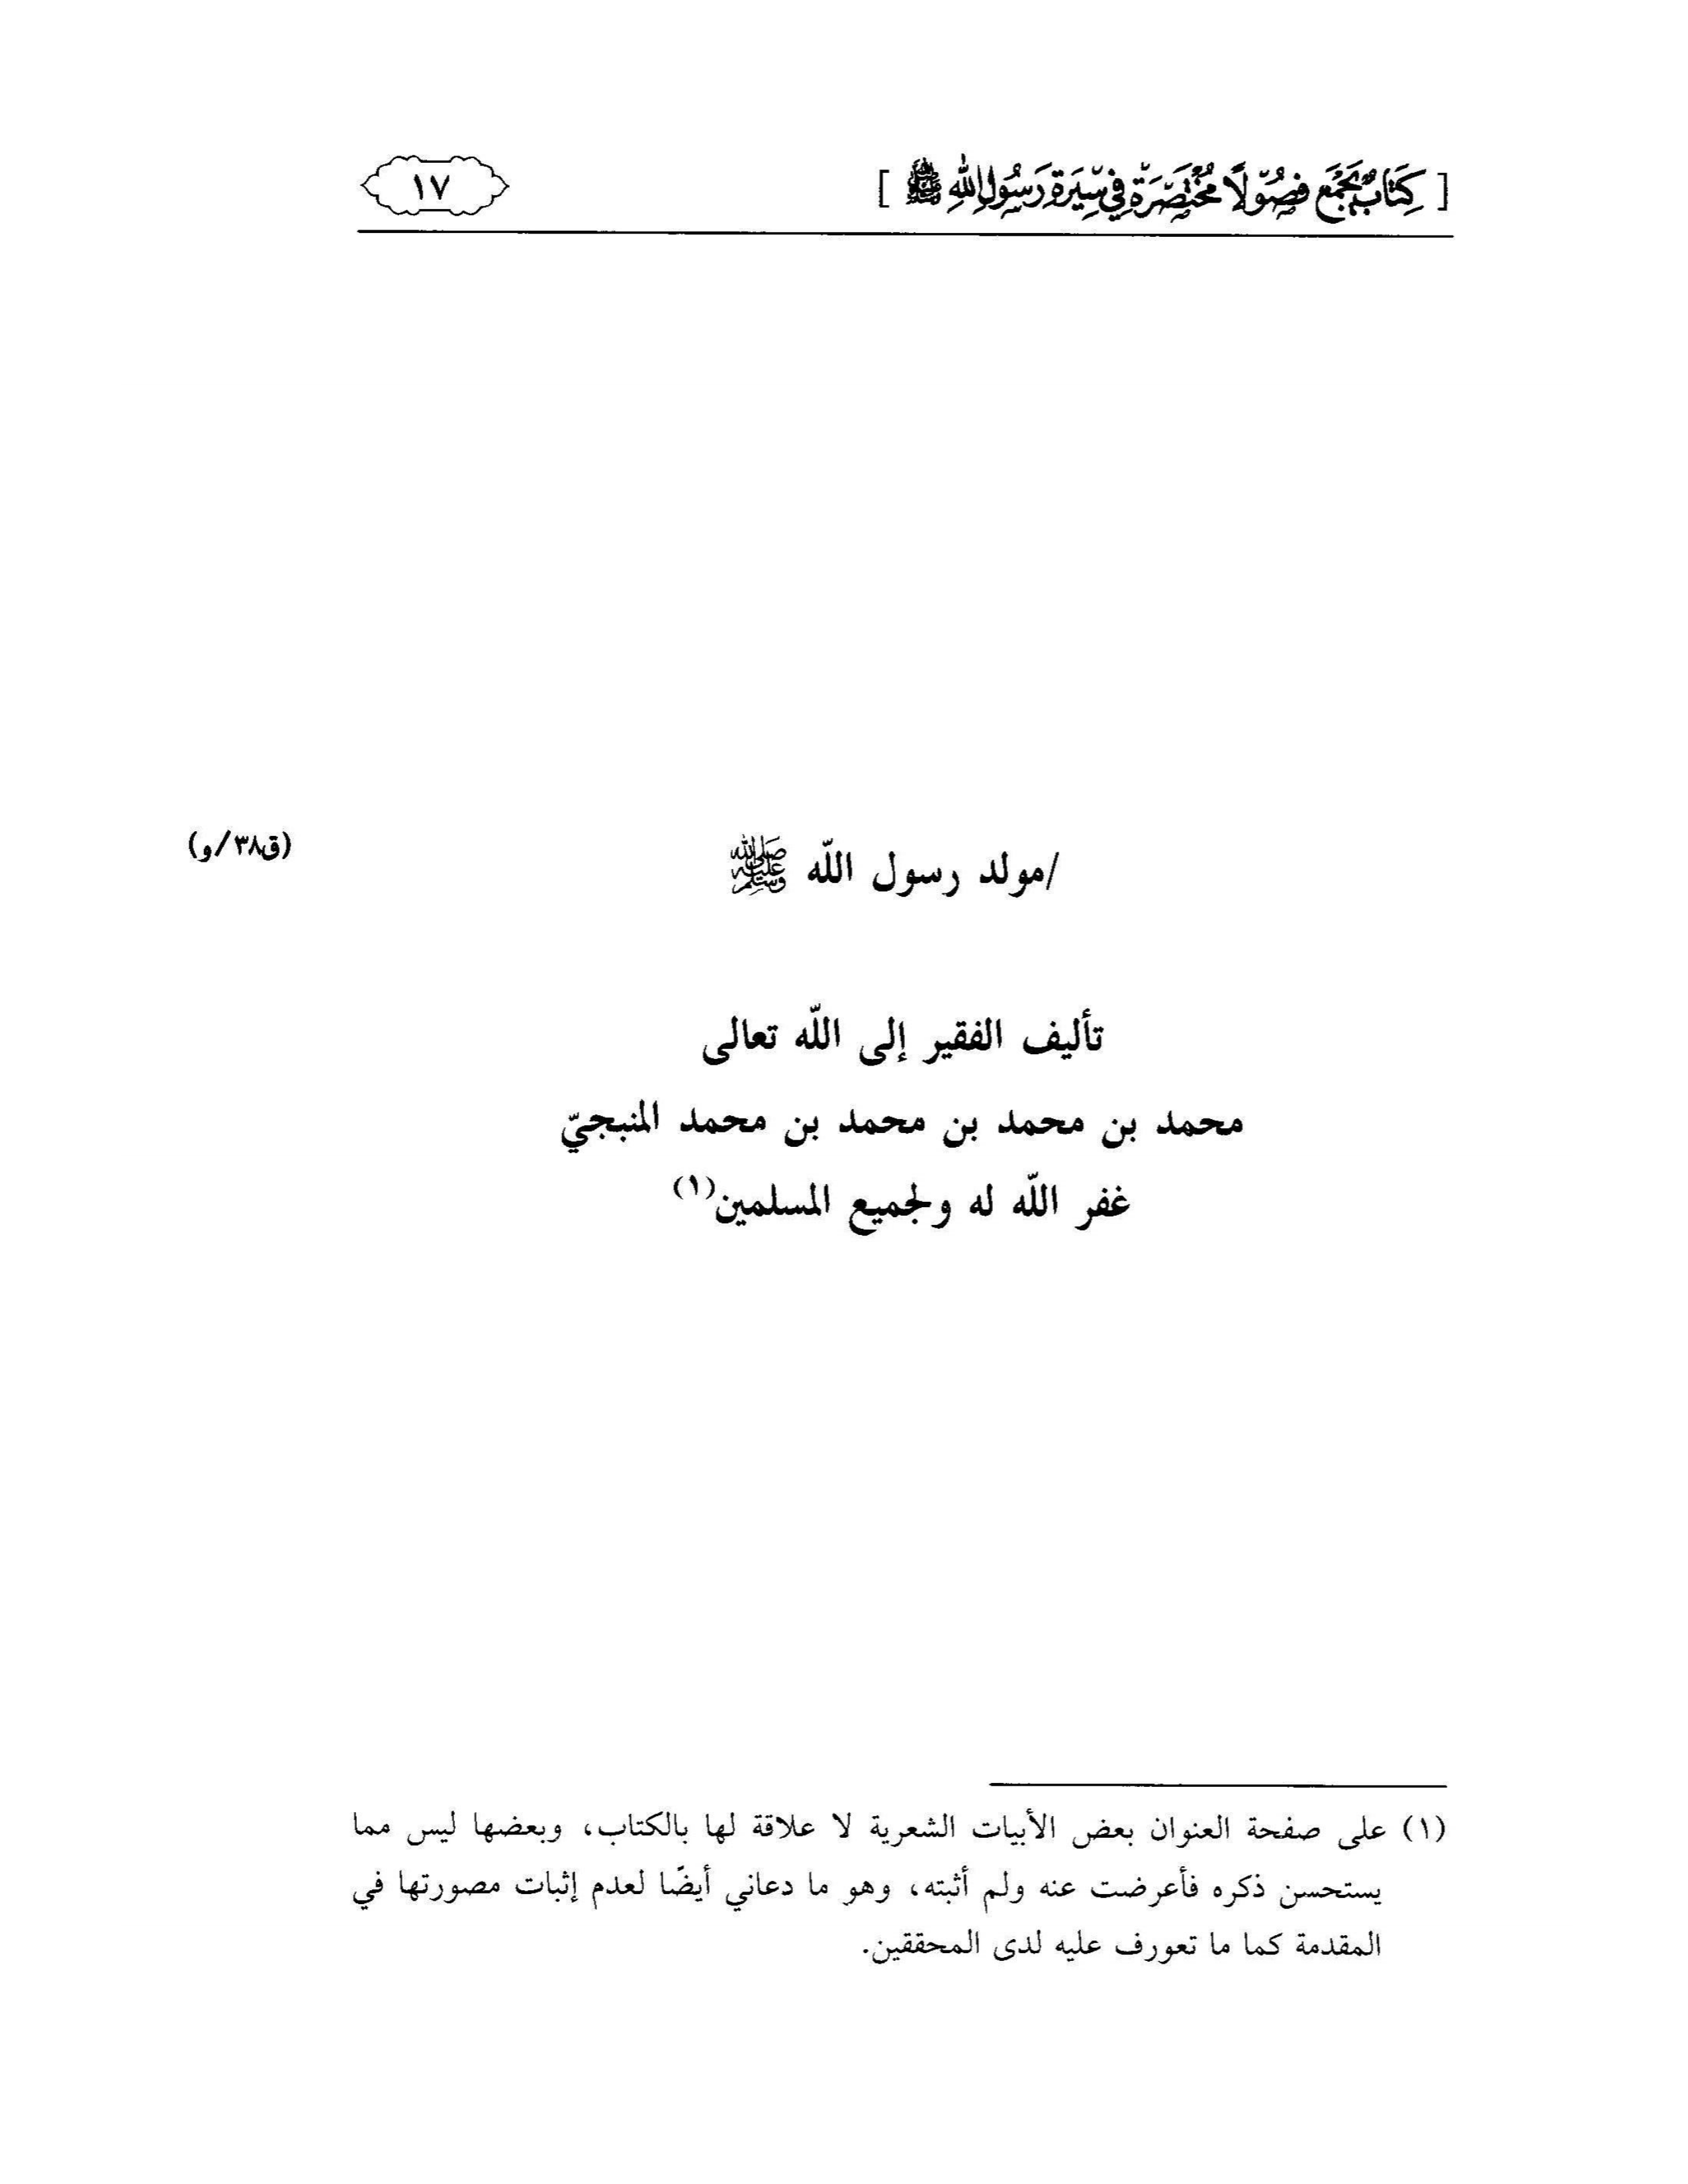 [ كِتَابٌ يَجْمَع فُصُولًا مُخْتَصَرَةً فِي سِيرَةِ رَسُولِ اللهِ ﷺ ]
١٧
/مولد رسول اللّه ﷺ
(ق٣٨/و)
تأليف الفقير إلى اللّه تعالى
محمد بن محمد بن محمد بن محمد المنبجيّ
غفر اللّه له ولجميع المسلمين(١)
(١) على صفحة العنوان بعض الأبيات الشعرية لا علاقة لها بالكتاب، وبعضها ليس مما
يستحسن ذكره فأعرضت عنه ولم أثبته، وهو ما دعاني أيضًا لعدم إثبات مصورتها في
المقدمة كما ما تعورف عليه لدى المحققين.